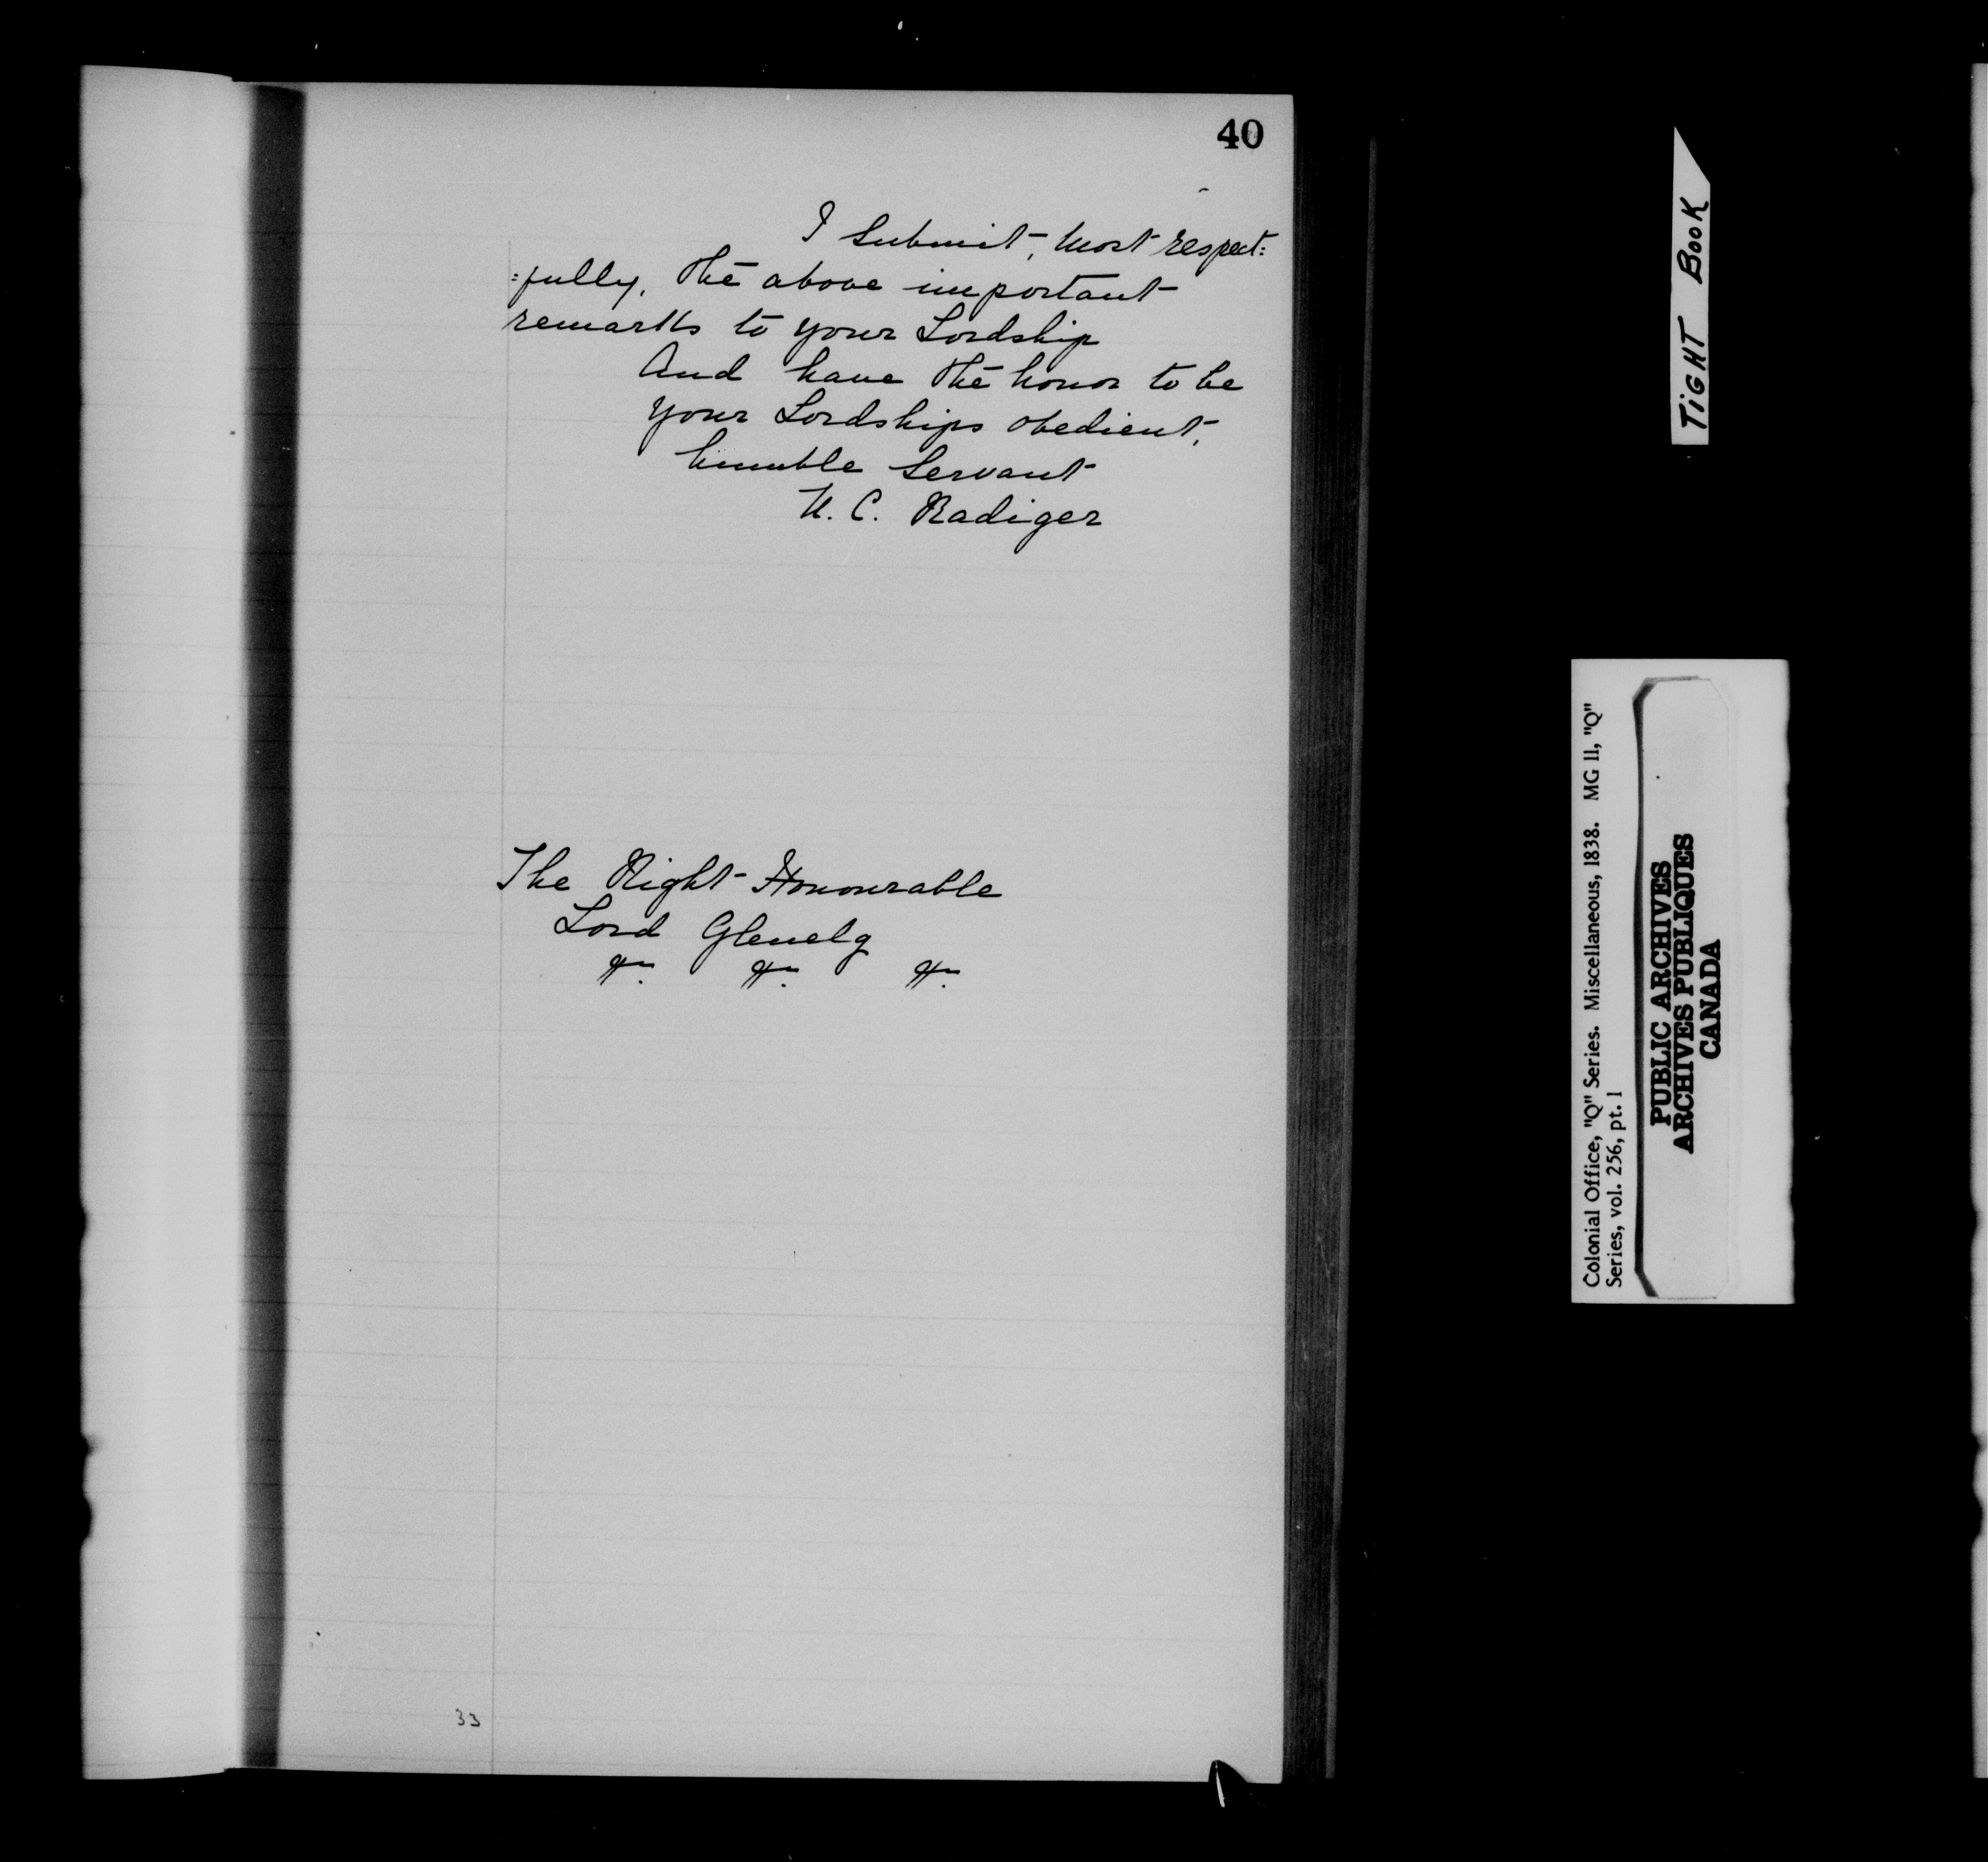 40
I submit, most respect:
:fully, the above important
remarks to your Lordship
And have the honor to be
your Lordships obedient,
humble servant
C. Radiger
The Right Honourable
Lord Glenelg
33
TIGHT BOOK
Colonial Office, "Q" Series. Miscellaneous, 1838. MG 11, "Q"
Series, vol. 256, pt. 1
PUBLIC ARCHIVES
ARCHIVES PUBLIQUES
CANADA